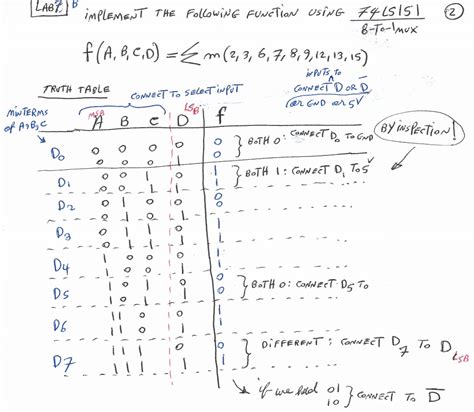 LAB 7 B IMPLEMENT THE FOLLOWING FUNCTION USING 74LS151 (2)
8-TO-1 MUX
f(A,B,C,D) = Σ m(2,3,6,7,8,9,12,13,15)
INPUTS TO
TRUTH TABLE CONNECT TO SELECT INPUT CONNECT D OR D̅
(OR GND OR 5V)
MINTERMS OF A,B,C
MSB LSB
A B C D f
BY INSPECTION!
D0 0 0 0 0 0 } BOTH 0: CONNECT D0 TO GND
0 0 0 1 0
D1 0 0 1 0 1 } BOTH 1: CONNECT D1 TO 5V
0 0 1 1 1
D2 0 1 0 0 0
0 1 0 1 0
D3 0 1 1 0 1
0 1 1 1 1
D4 1 0 0 0 1
1 0 0 1 1
D5 1 0 1 0 0 } BOTH 0: CONNECT D5 TO
1 0 1 1 0
D6 1 1 0 0 1
1 1 0 1 1
D7 1 1 1 0 0 } DIFFERENT: CONNECT D7 TO D LSB
1 1 1 1 1
if we had 01
10 } CONNECT TO D̅